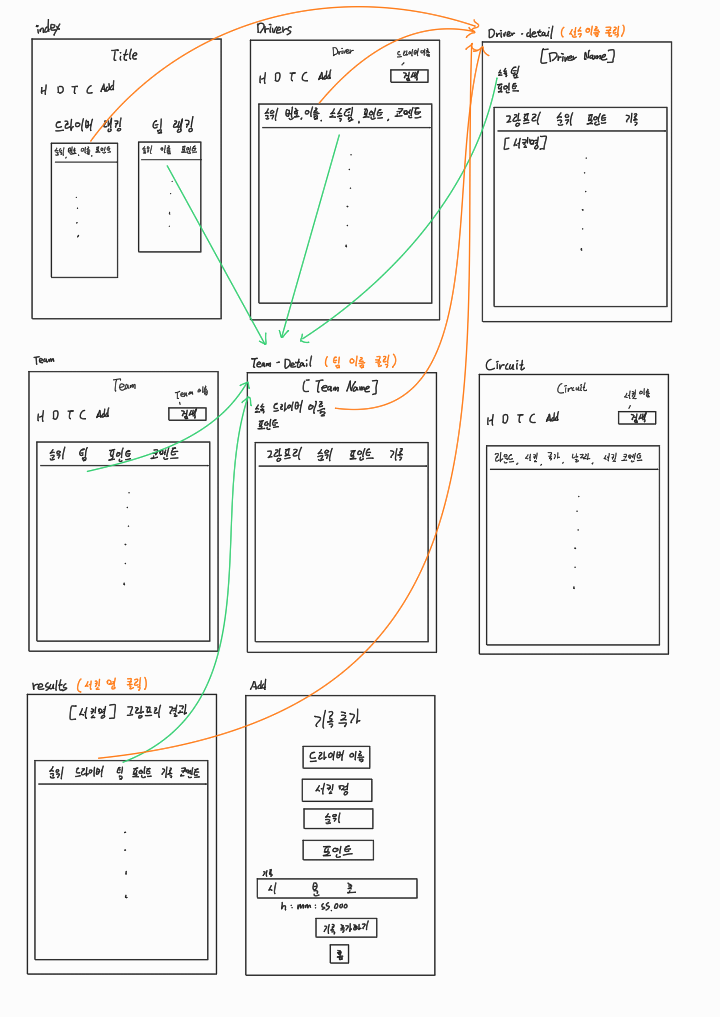 index
Title
H D T C Add
드라이버 랭킹
팀 랭킹
순위, 번호, 이름, 포인트
순위 이름 포인트
Drivers
Driver
드라이버 이름
H D T C Add
검색
순위, 번호, 이름, 소속팀, 포인트, 코멘트
Driver - detail (선수 이름 클릭)
[Driver Name]
소속 팀
포인트
그랑프리 순위 포인트 기록
[서킷명]
Team
Team
Team 이름
H D T C Add
검색
순위 팀 포인트 코멘트
Team - Detail (팀 이름 클릭)
[Team Name]
소속 드라이버 이름
포인트
그랑프리 순위 포인트 기록
Circuit
Circuit
서킷 이름
H D T C Add
검색
라운드, 서킷, 국가, 날짜, 서킷 코멘트
results (서킷 명 클릭)
[서킷명] 그랑프리 결과
순위 드라이버 팀 포인트 기록 코멘트
Add
기록 추가
드라이버 이름
서킷 명
순위
포인트
기록
시 분 초
h : mm : ss.000
기록 추가하기
홈